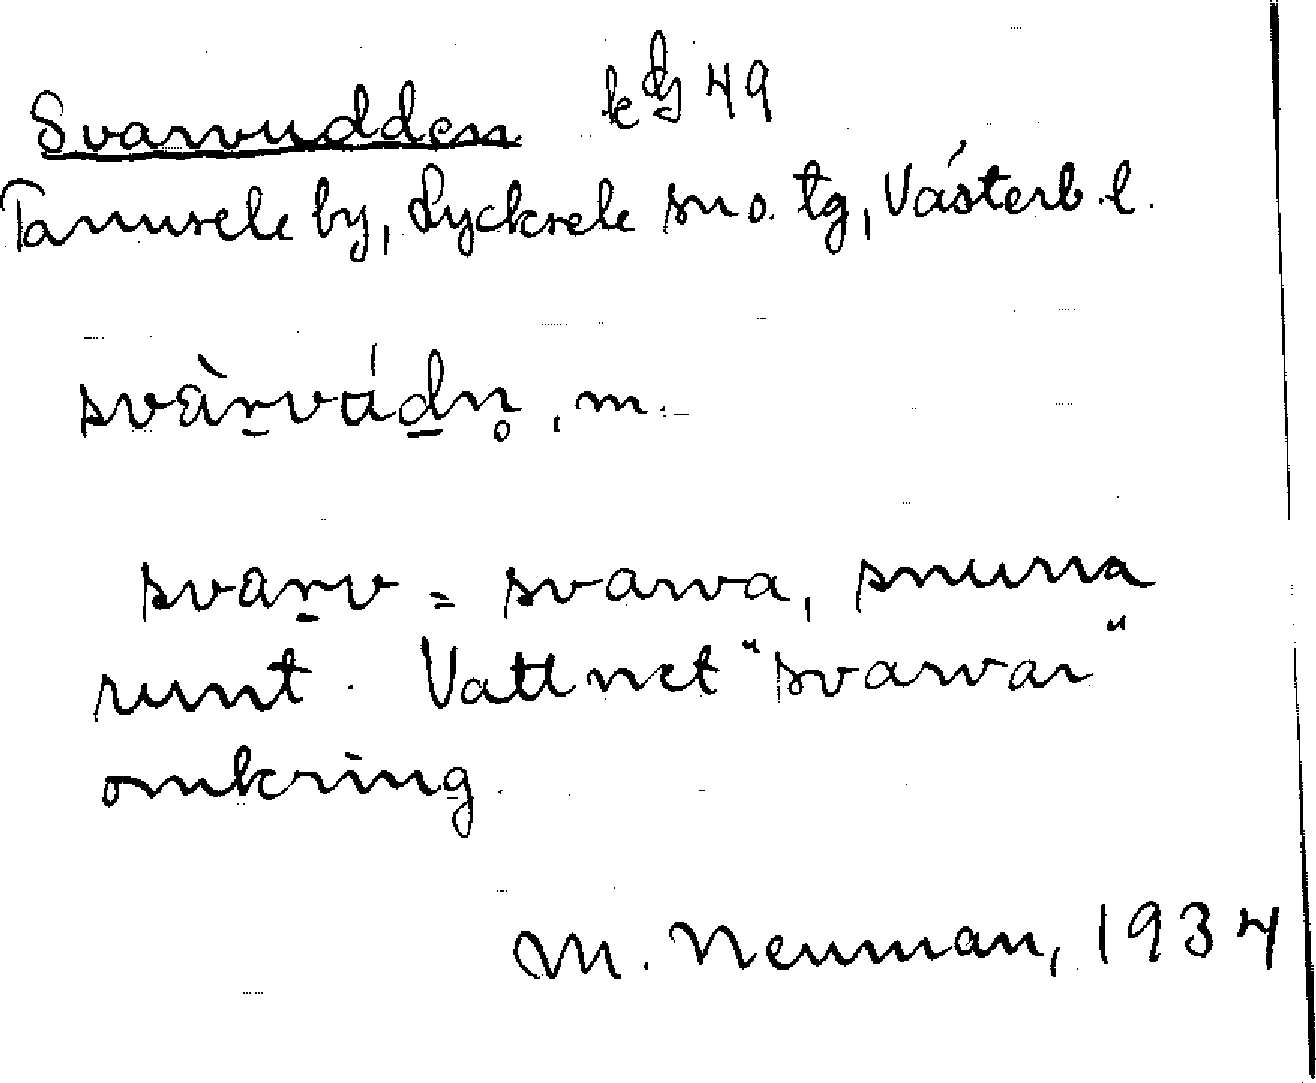 Svarvudden kdg 49
Tannsele by, Lycksele sn o. tg, Västerb. l.
svàrvúdn̥, m.
svarv = svarva, snurra
runt. Vattnet "svarvar"
omkring.
M. Neuman, 1934